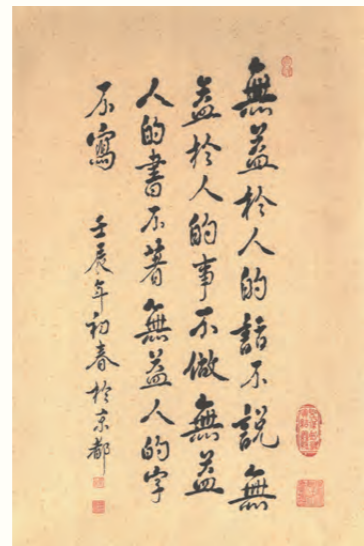 無益於人的話不說無
益於人的事不做無益
人的書不著無益人的字
不寫 壬辰年初春於京都